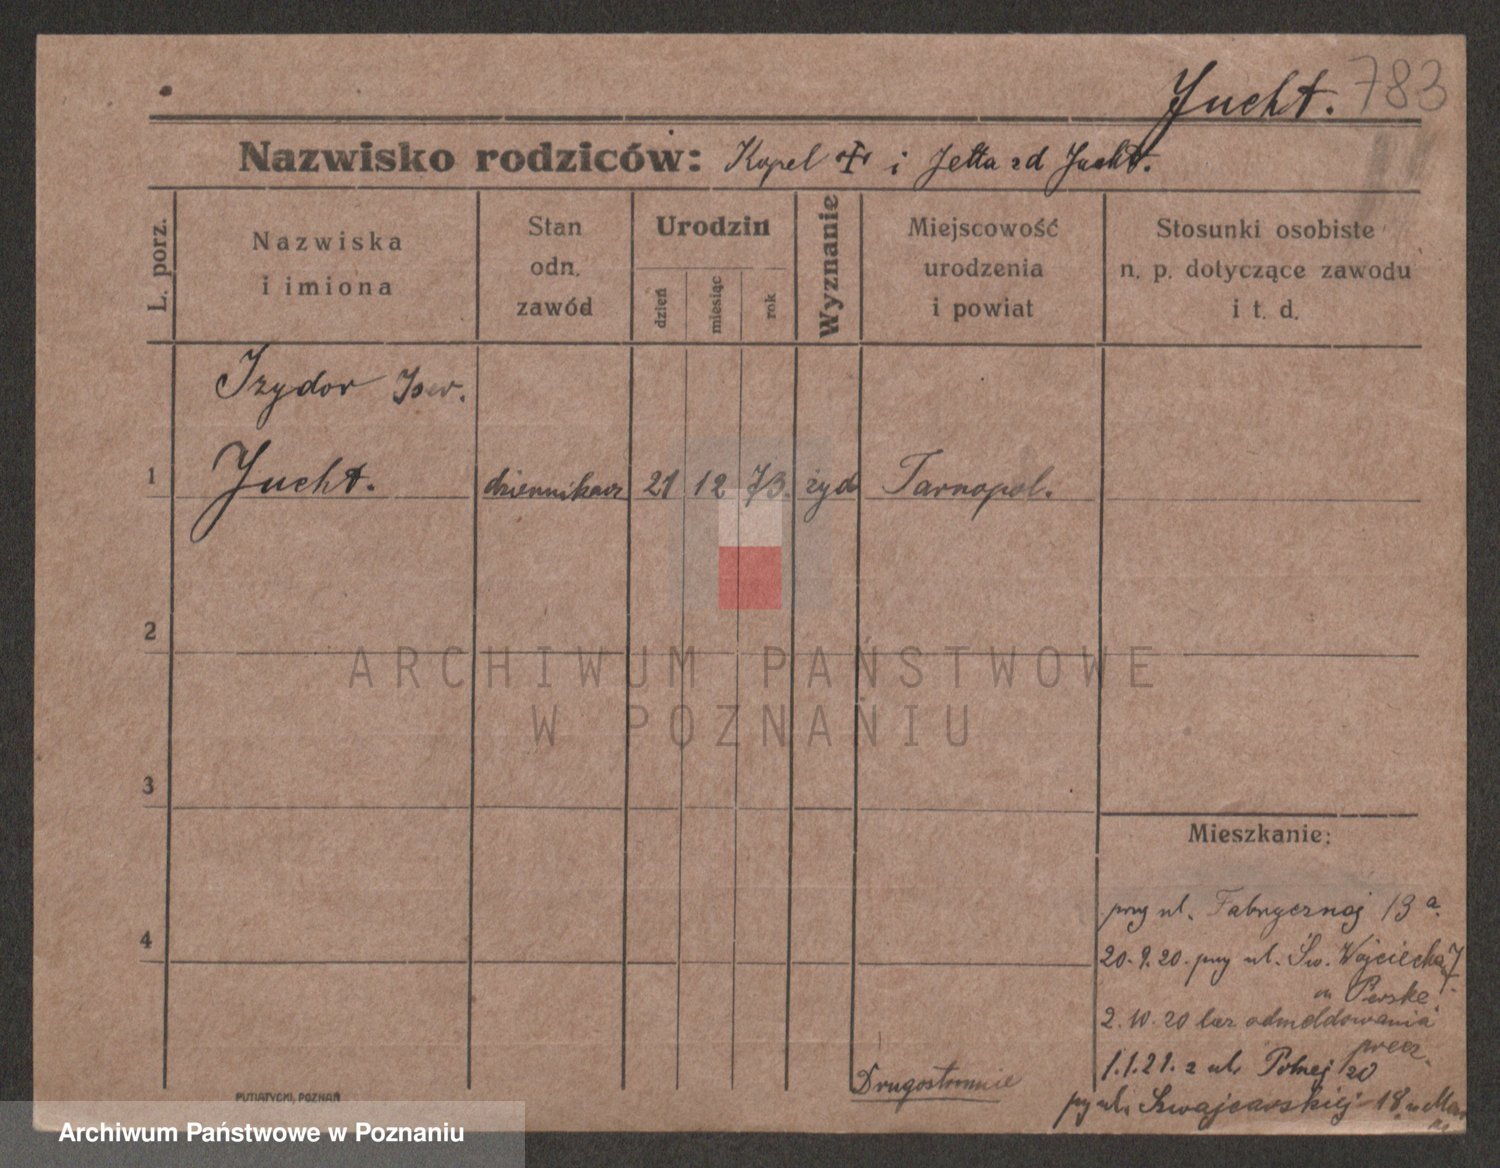 Jucht. 783
Nazwisko rodziców: Kopel i Jetta zd Jucht.
L. porz.
Nazwiska
i imiona
Stan
odn.
zawód
Urodzin
dzień
miesiąc
rok
Wyznanie
Miejscowość
urodzenia
i powiat
Stosunki osobiste
n. p. dotyczące zawodu
i t. d.
Izydor Iser.
1 Jucht. dziennikarz 21 12 73. żyd Tarnopol.
2
3
4
Mieszkanie:
przy ul. Fabrycznej 13 a.
20.9.20. przy ul. Św. Wojciecha 7
2.10.20 bez odmeldowania
precz.
1.1.21. z ul. Polnej 20
przy ul. Szwajcarskiej 18
Drugostronnie
PUTIATYCKI, POZNAŃ
ARCHIWUM PAŃSTWOWE
W POZNANIU
Archiwum Państwowe w Poznaniu